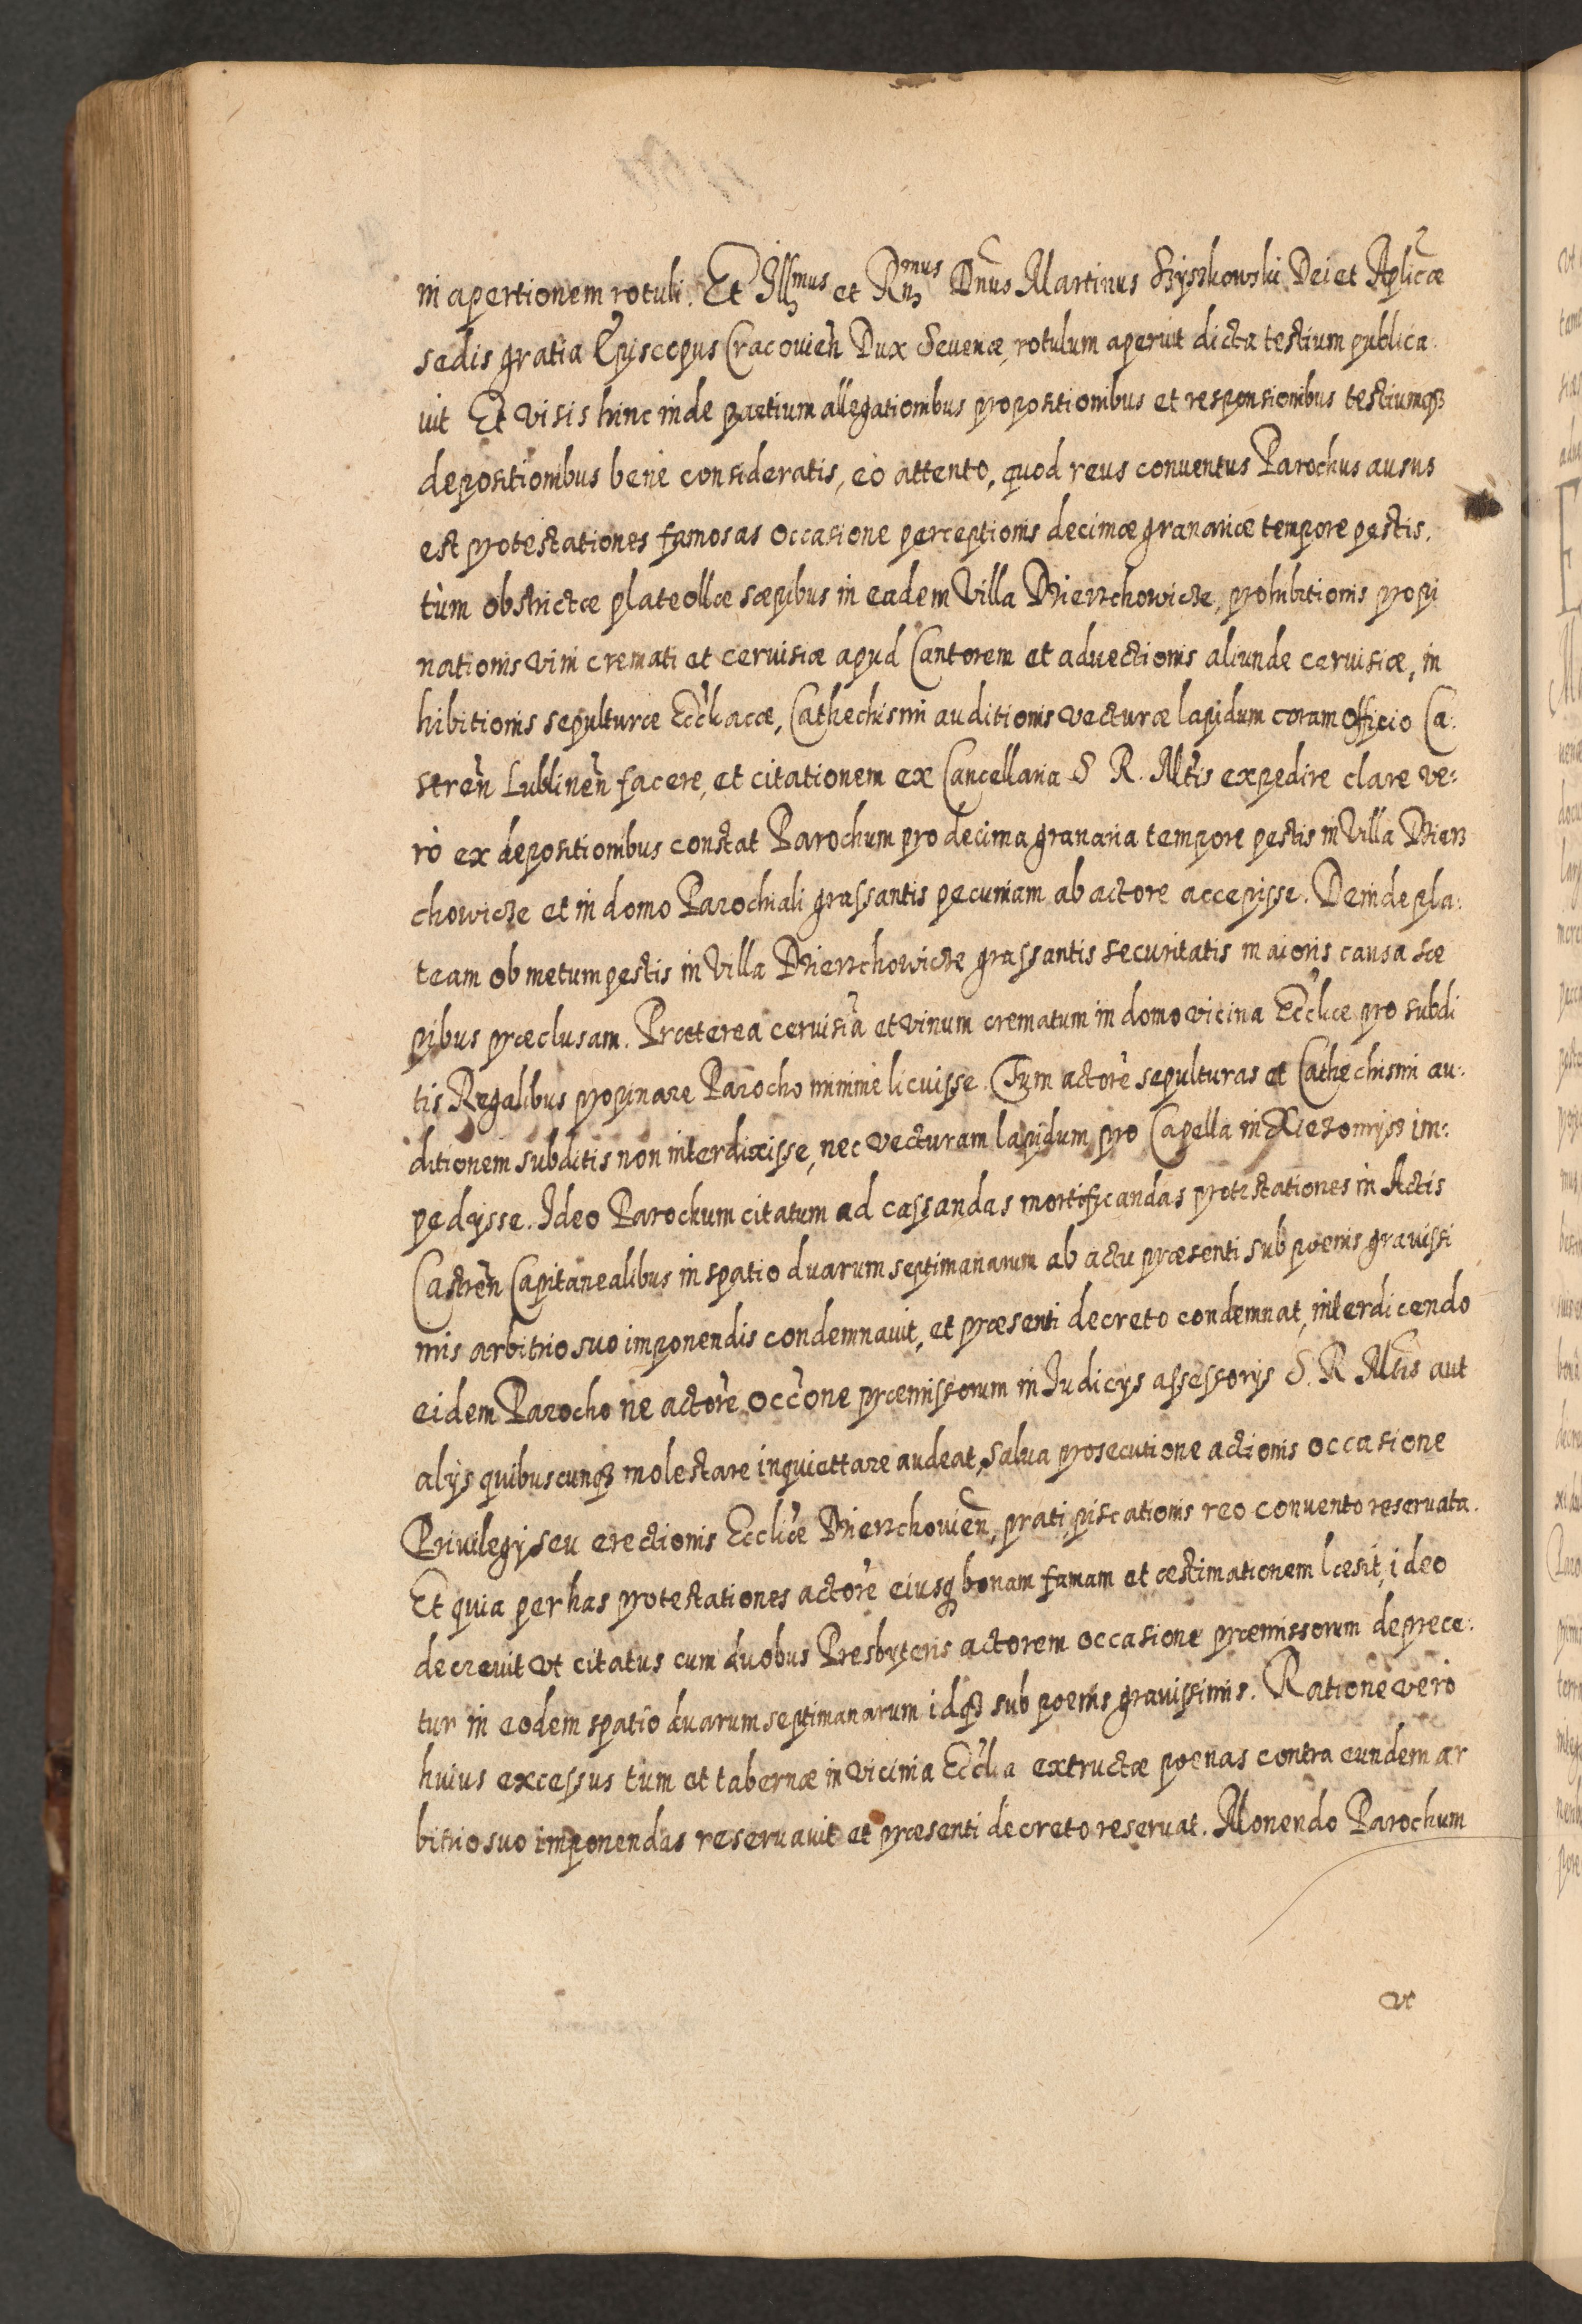 in apertionem rotuli. Et Illmus et Rnmus Dnus Martinus Szyszkowski Dei et Aplicæ
sedis gratia Episcopus Cracovien Dux Severiæ, rotulum aperuit dicta testium publica
vit Et visis hinc inde partium allegationibus propositionibus et responsionibus testiumq3
depositionibus bene consideratis, eo attento, quod reus conventus Parochus ausus
est protestationes famosas occasione perceptionis decimæ granariæ tempore pestis,
tùm obstrictæ plateollæ sæpibus in eadem Villa Dzierzchowicze, prohibitionis propi
nationis vini cremati et cervisiæ apud Cantorem et advectionis aliunde cervisiæ, in
hibitionis sepulturæ Eccliacæ, Cathechismi auditionis vecturæ lapidum coram officio Ca:
stren Lublinen facere, et citationem ex Cancellaria S R. Mtis expedire clare ve:
rò ex depositionibus constat Parochum pro decima granaria tempore pestis in Villa Dzierz
chowicze et in domo Parochiali grassantis pecuniam ab actore accepisse. Deinde pla:
team ob metum pestis in Villa Dzierzchowicze grassantis securitatis maioris causa sæ
pibus præclusam. Præterea cervisia et vinum crematum in domo vicina Eccliæ pro subdi
tis Regalibus propinare Parocho minime licuisse. Tum actore sepulturas et Cathechismi au:
ditionem subditis non interdixisse, nec vecturam lapidum pro Capella in im:
pedysse. Ideo Parochum citatum ad cassandas mortificandas protestationes in Actis
Castren Capitanealibus in spatio duarum septimanarum ab actu præsenti sub poenis gravissi
mis arbitrio suo imponendis condemnavit, et præsenti decreto condemnat, interdicendo
eidem Parocho ne actore occone præmissorum in Iudicys assessorys S. R Mtis aut
alys quibuscunq3 molestare inquiettare audeat, salva prosecutione actionis occasione
Privilegy seu erectionis Eccliæ Dzierzchovien, prati, piscationis reo convento reservata.
Et quia per has protestationes actore eiusq3 bonam famam et æstimationem læsit, ideo
decrevit vt citatus cum duobus Presbyteris actorem occasione præmissorum deprece:
tur in eodem spatio duarum septimanarum idq3 sub poenis gravissimis. Ratione verò
huius excessus tum et tabernæ in vicinia Ecclia extructæ poenas contra eundem ar
bitrio suo imponendas reservavit et præsenti decreto reservat. Monendo Parochum
vt